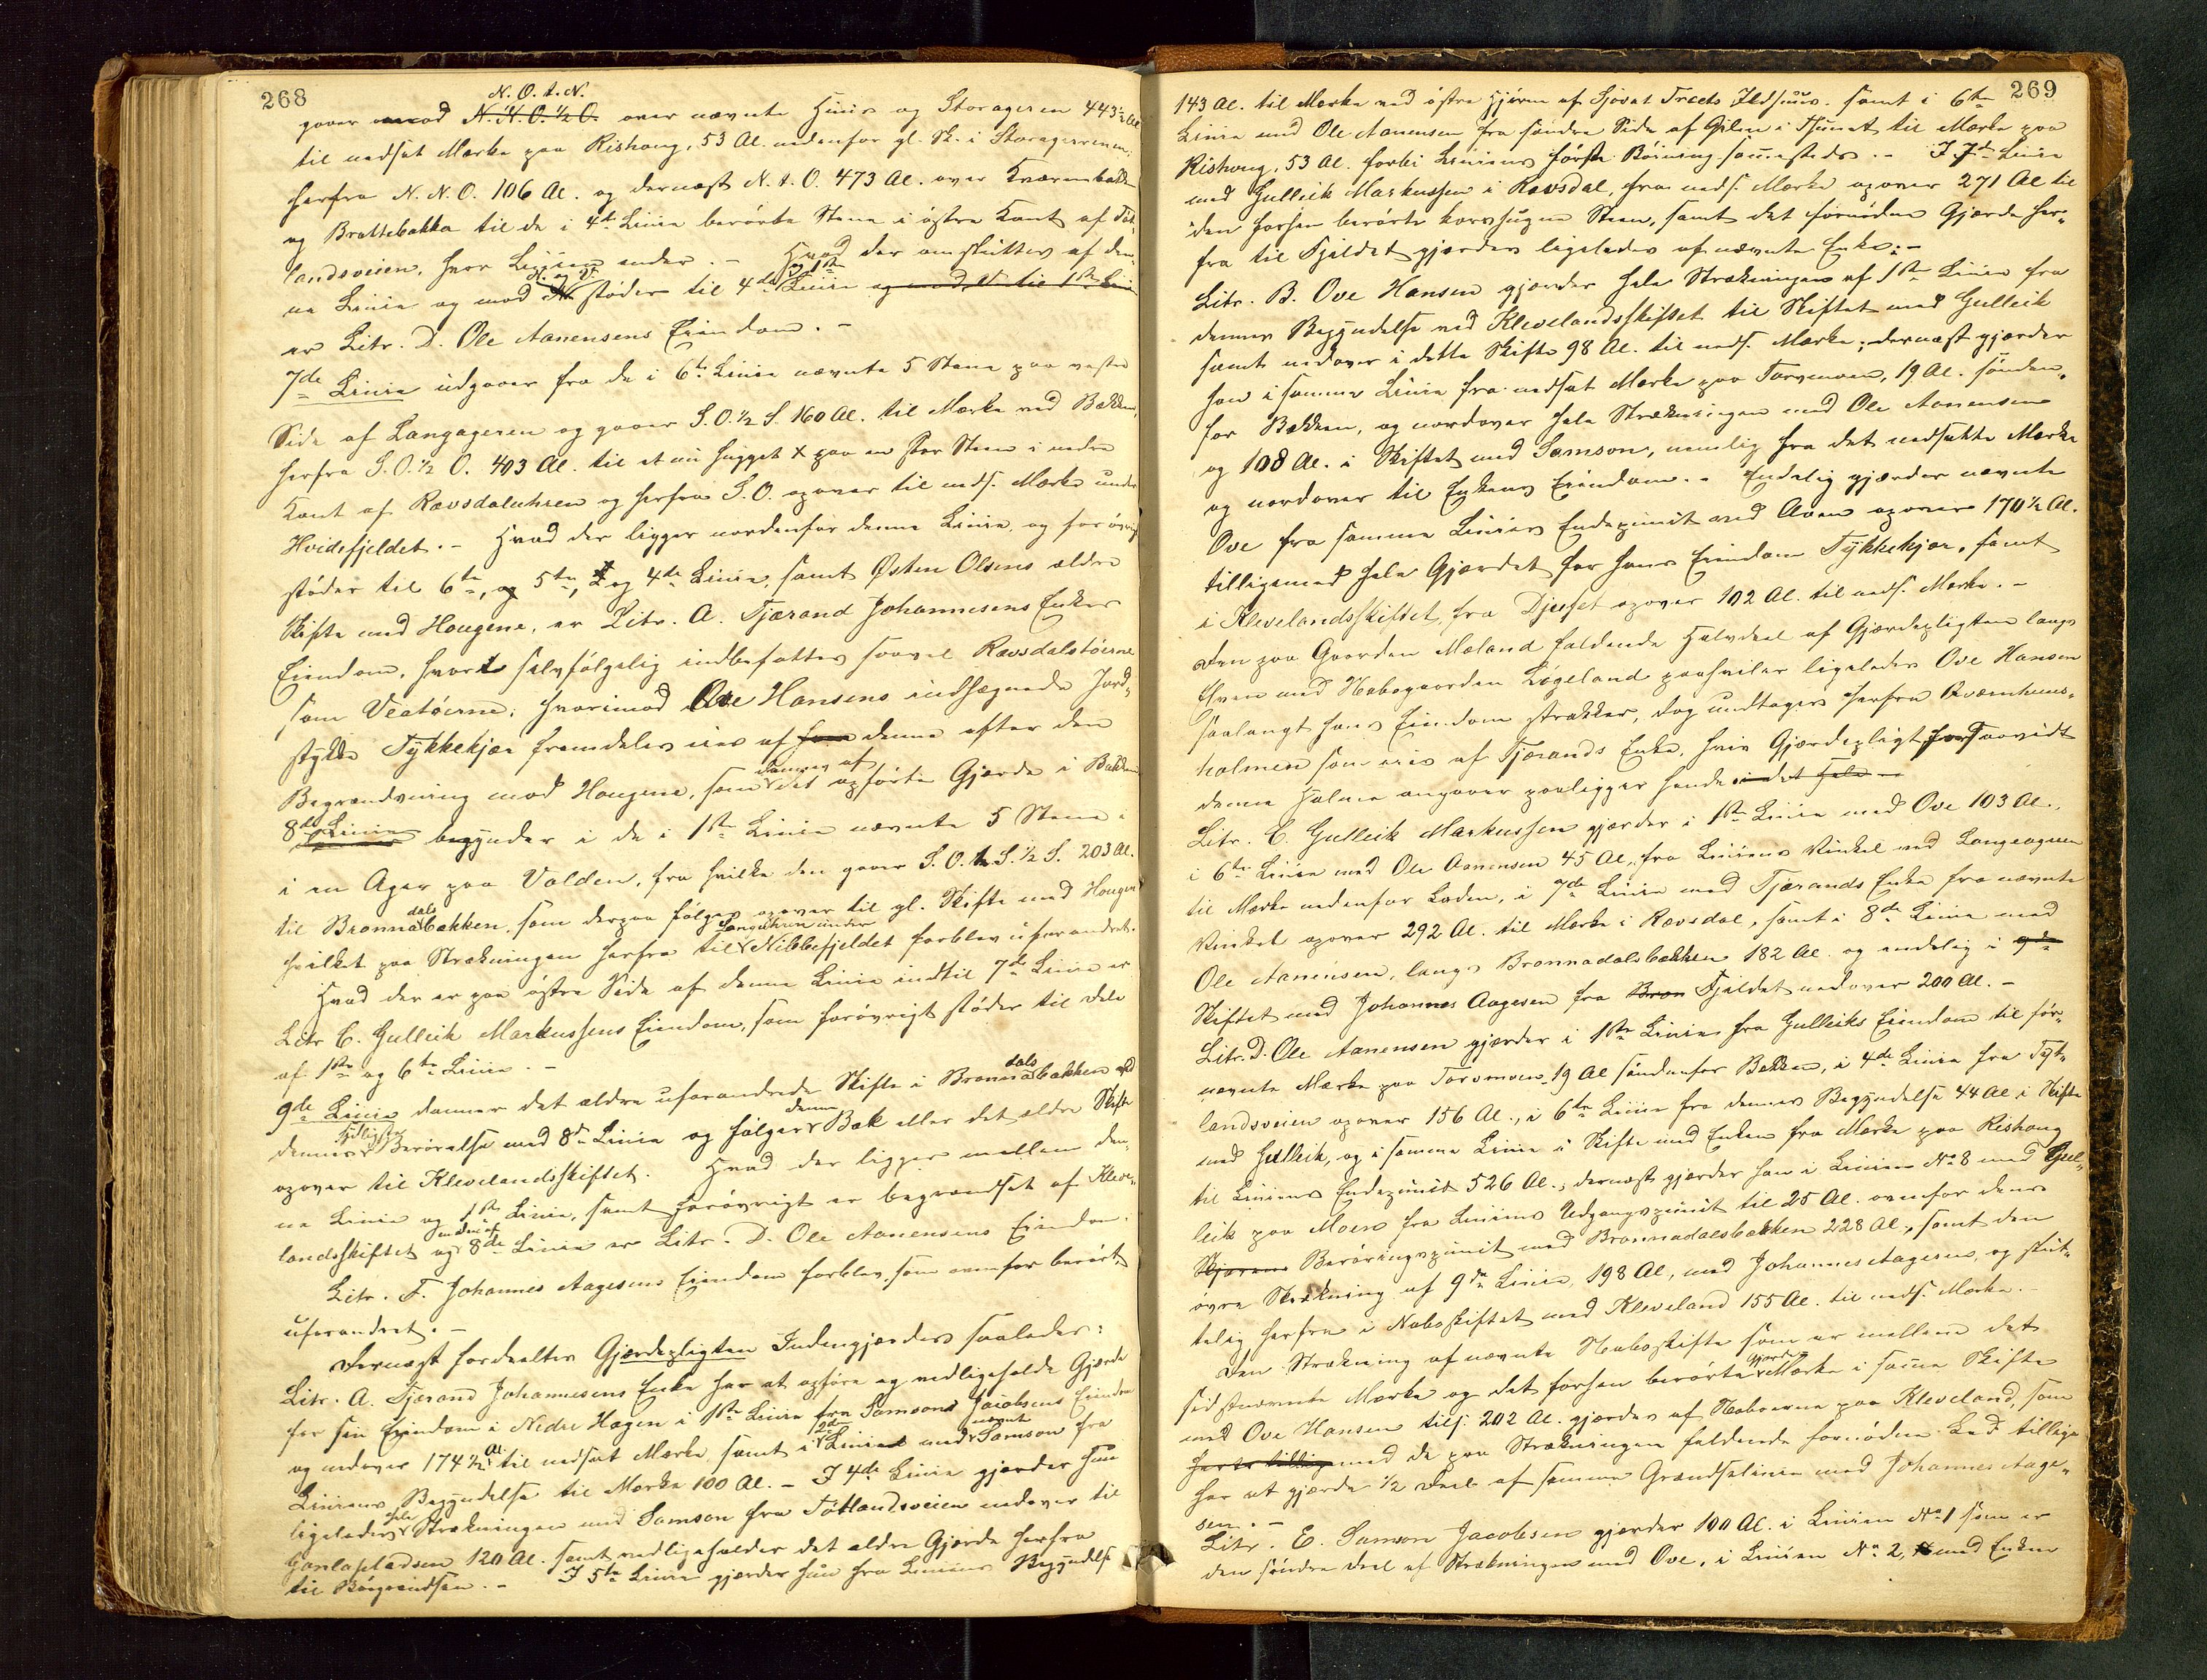 268
N. O. t. N.
gaar mod N. N. O. ½ O. over nævnte Huus og Storageren 443½ Al.
til nedsat Mærke paa Rishoug, 53 Al. nedenfor gl. Sk. i Storagerrenen;
herfra N. N. O. 106 Al. og dernæst N. t. O. 473 Al. over Kværnebakken
og Brattebakka til de i 4de Linie berørte Stene i østre Kant af Tøt-
landsveien, hvor Linien ender. – Hvad der omsluttes af den-
ne Linie og mod N. og V. støder til 4de og 1ste Linie og mod V. til 1ste Linie
er Litr. D. Ole Aanensens Eiendom. –
7de Linie udgaaer fra de i 6te Linie nævnte 5 Stene paa vestre
Side af Langageren og gaaer S. O. ½ S. 160 Al. til Mærke ved Bækken,
herfra S. O. ½ O. 403 Al. til et nu hugget X paa en stor Steen i nedre
Kant af Rævsdaluhren og herfra S. O. opover til neds. Mærke under
Hvidefjeldet. – Hvad der ligger nordenfor denne Linie og forøvrigt
støder til 6te, og 5te, 2 og 4de Linie, samt Østen Olsens ældre
Skifte med Hougene, er Litr. A. Tjærand Johannesens Enkes
Eiendom, hvori selvfølgelig indbefattes saavel Rævsdalstøerne
som Veatøerne; hvorimod Ove Hansens indhegnede Jord-
stykke Tykkekjær fremdeles eies af denne efter den
Begrændsning mod Hougene, som dannes af det opførte Gjærde i Bakken.
8de Linie begynder i de i 1ste Linie nævnte 5 Stene i
i en Ager paa Volden, fra hvilke den gaaer S. O. t. S. ½ S. 203 Al.
til Brønnadalsbækken, som derpaa følges opover til gl. Skifte med Hougene
hvilket paa Strækningen herfra til Languhren under Nibbefjeldet forblev uforandret.
Hvad der er paa østre Side af denne Linie indtil 7de Linie er
Litr. C. Gulleik Markussens Eiendom, som forøvrigt støder til Dele
af 1ste og 6te Linie. –
9de Linie danner det ældre uforandrede Skifte i Brønnadalsbækken ved
dennes sydligste Berørelse med 8de Linie og følger denne Bæk eller det ældre Skifte
opover til Klevelandsskiftet. Hvad der ligger mellem den-
ne Linie og 1ste Linie, samt forøvrigt er begrændset af Kleve-
landsskiftet og en Deel af 8de Linie er Litr. D. Ole Aanensens Eiendom.
Litr. F. Johannes Aagesens Eiendom forblev, som ovenfor berørt,
uforandret. –
Dernæst fordeeltes Gjærdepligten Indengjærdes saaledes:
Litr. A. Tjærand Johannesens Enke har at opføre og vedligeholde Gjærde
for sin Eiendom i Nedre Hagen i 1ste Linie fra Samson Jacobsens Eiendom
og nedover 174½ Al. til nedsat Mærke, samt i 2den Linie med nævnte Samson fra
Liniens Begyndelse til Mærke 100 Al. – I 4de Linie gjærder hun
ligeledes hele Strækningen med Samson fra Tøtlandsveien nedover til
Garlapladsen 120 Al. samt vedligeholder det ældre Gjærde herfra
til Bøigrændsen. – I 5te Linie gjærder hun fra Liniens Begyndelse
269
143 Al. til Mærke ved østre Hjørne af Sjovat Træets Ildhuus. samt i 6te
Linie med Ole Aanensen fra søndre Side af Gilen i Tunet til Mærke paa
Rishoug, 53 Al. forbi Liniens første Bøining sammesteds. – I 7de Linie
med Gulleik Markussen i Rævsdal, fra neds. Mærke opover 271 Al til
den forhen berørte korshugne Steen, samt det fornødne Gjærde her-
fra til Fjeldet gjærdes ligeledes af nævnte Enke. –
Litr. B. Ove Hansen gjærder hele Strækningen af 1ste Linie fra
dennes Begyndelse ved Klevelandsskiftet til Skiftet med Gulleik
samt nedover i dette Skifte 98 Al. til neds. Mærke; dernæst gjærder
han i samme Linie fra nedsat Mærke paa Torvmoen, 19 Al. sønden-
for Bækken, og nordover hele Strækningen med Ole Aanensen
og 108 Al. i Skiftet med Samson, nemlig fra det nedsatte Mærke
og nordover til Enkens Eiendom. – Endelig gjærder nævnte
Ove fra samme Linies Endepunkt ved Aaen opover 170½ Al.
tilligemed hele Gjærdet for hans Eiendom Tykkekjær, samt
i Klevelandsskiftet, fra Djuset opover 102 Al. til neds. Mærke. –
Den paa Gaarden Mæland faldende Halvdeel af Gjærdepligten langs
Elven med Nabogaarden Løgeland paahviler ligeledes Ove Hansen
saalangt hans Eiendom strækker, dog undtages herfra Qværnhuus-
holmen som eies af Tjærands Enke, hvis Gjærdepligt forsaavidt
denne Holme angaaer paaligger hende i det Hele. –
Litr. C. Gulleik Markussen gjærder i 1ste Linie med Ove 103 Al.,
i 6te Linie med Ole Aanensen 45 Al., fra Liniens Vinkel ved Langeageren
til Mærke nedenfor Løden, i 7de Linie med Tjærands Enke fra nævnte
Vinkel opover 292 Al. til Mærke i Rævsdal, samt i 8de Linie med
Ole Aanensen, langs Brønnadalsbækken 182 Al. og endelig i 9de
Skiftet med Johannes Aagesen fra Brøn Fjeldet nedover 200 Al. –
Litr. D. Ole Aanensen gjærder i 1ste Linie fra Gulleiks Eiendom til før-
nævnte Mærke paa Torvmoen, 19 Al søndenfor Bækken, i 4de Linie fra Tøt-
landsveien opover 156 Al., i 6te Linie fra dennes Begyndelse 44 Al i Skifte
med Gulleik, og i samme Linie i Skifte med Enken fra Mærke paa Rishoug
til Liniens Endepunkt 526 Al., dernæst gjærder han i Linien No 8 med Gul-
leik paa Moen fra Liniens Udgangspunkt til 25 Al. ovenfor dens
Berøringspunkt med Brønnadalsbækken 228 Al., samt den
øvre Strækning af 9de Linie, 198 Al, med Johannes Aagesen, og slut-
telig herfra i Naboskiftet med Kleveland 155 Al. til neds. Mærke. –
Den Strækning af nævnte Naboskifte som er mellem det
sidstnævnte Mærke og det forhen berørte Gjærde Mærke i samme Skifte
med Ove Hansen tils: 202 Al. gjærdes af Naboerne paa Kleveland, som
har tillige med de paa Strækningen faldende fornødne Led tillige
har at gjærde ½ Deel af samme Grændselinie med Johannes Aage-
sen. –
Litr. E. Samson Jacobsen gjærder 100 Al. i Linien No 1 som er
den søndre Deel af Strækningen med Ove, i Linien No 2, med Enken